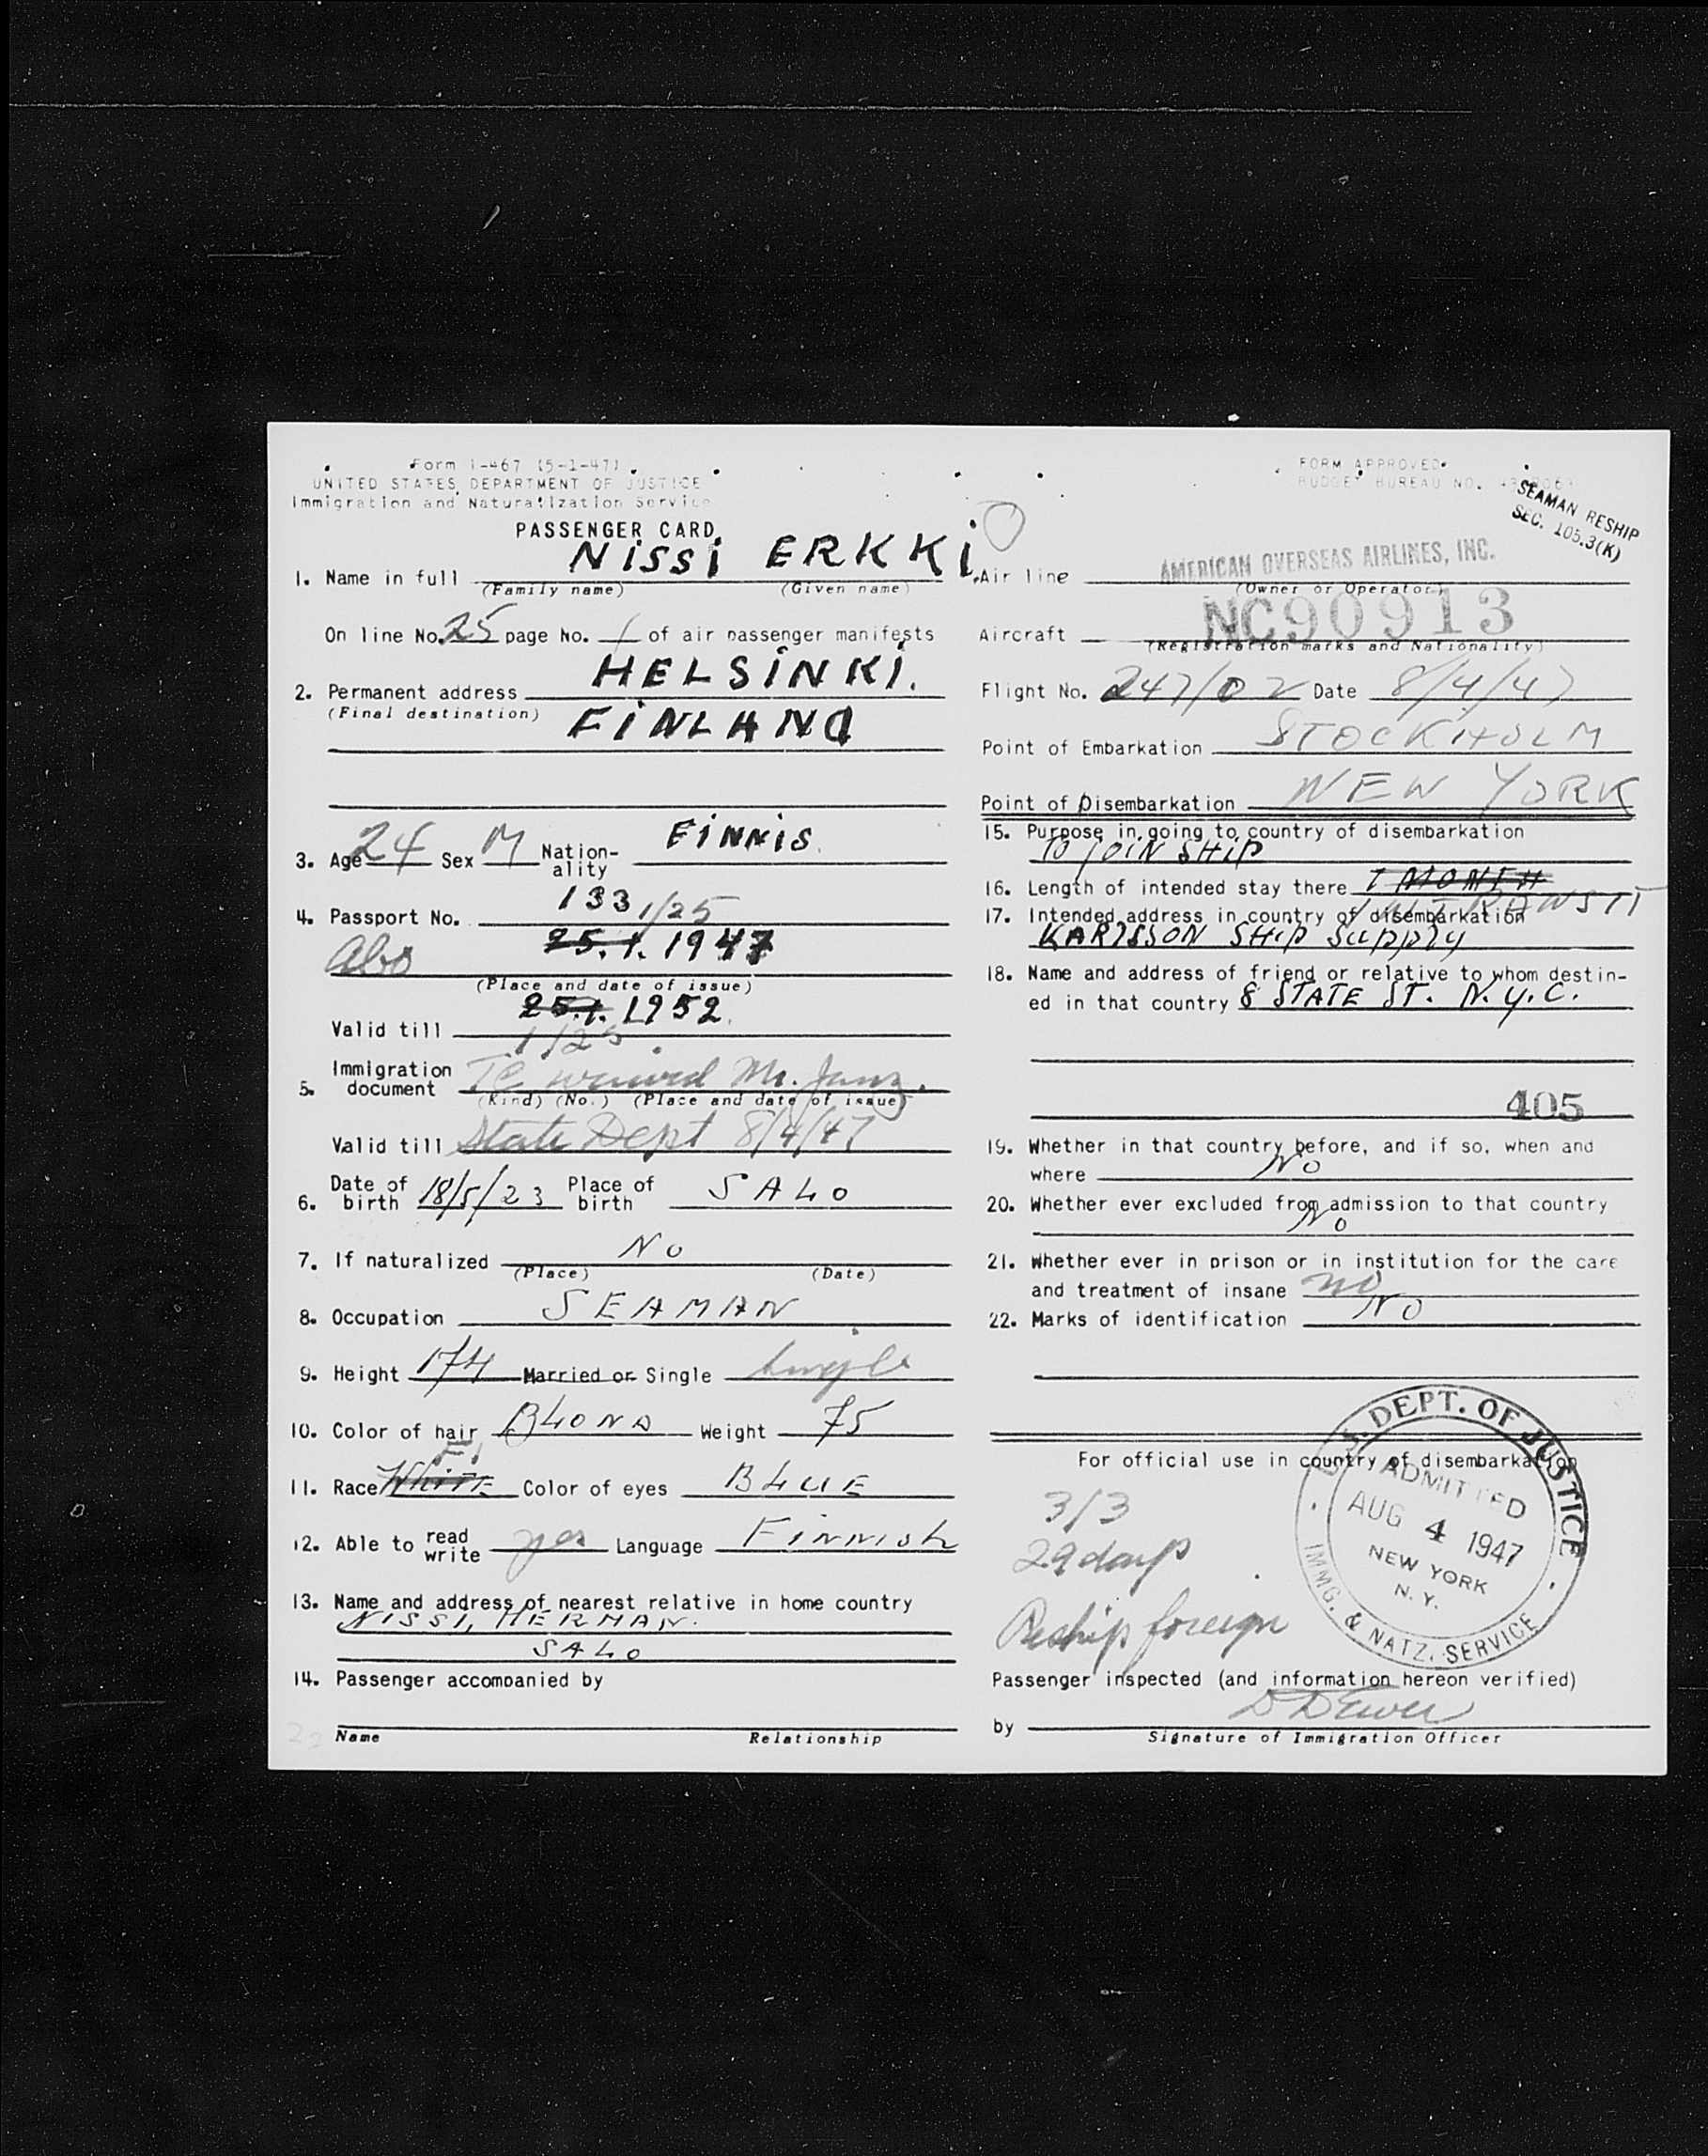 Form I-467 (5-1-47)
UNITED STATES DEPARTMENT OF JUSTICE
Immigration and Naturalization Service
PASSENGER CARD
1. Name in full NISSI ERKKI
(Family name) (Given name)
On line No. 25 page No. 1 of air passenger manifests
2. Permanent address HELSINKI.
(Final destination) FINLAND
3. Age 24 Sex M Nation-ality FINNIS.
4. Passport No. 133 1/25
Abo 25.1. 1947
(Place and date of issue)
25.1. 1952.
Valid till 1/25
5. Immigration document TC waived Mr.
(Kind) (No.) (Place and date of issue)
Valid till State Dept 8/4/47
6. Date of birth 18/5/23 Place of birth SALO
7. If naturalized NO
(Place) (Date)
8. Occupation SEAMAN
9. Height 174 Married or Single Single
10. Color of hair BLOND Weight 75
11. Race White Color of eyes BLUE
12. Able to read write yes Language Finnish
13. Name and address of nearest relative in home country
NISSI, HERMAN.
SALO
14. Passenger accompanied by
Name Relationship
FORM APPROVED
BUDGET BUREAU NO.
SEAMAN RESHIP
SEC. 105.3(K)
Air line AMERICAN OVERSEAS AIRLINES, INC.
(Owner or Operator)
Aircraft NC90913
(Registration marks and Nationality)
Flight No. 247/02 Date 8/4/47
Point of Embarkation STOCKHOLM
Point of Disembarkation NEW YORK
15. Purpose in going to country of disembarkation
TO JOIN SHIP
16. Length of intended stay there 1 MONTH
17. Intended address in country of disembarkation
KARLSSON SHIP SUPPLY
18. Name and address of friend or relative to whom destin-
ed in that country 8 STATE ST. N.Y.C.
405
19. Whether in that country before, and if so, when and
where NO
20. Whether ever excluded from admission to that country
NO
21. Whether ever in prison or in institution for the care
and treatment of insane no
22. Marks of identification NO
For official use in country of disembarkation
3/3
29 days
Reship foreign
U.S. DEPT. OF JUSTICE
ADMITTED
AUG 4 1947
NEW YORK
N. Y.
IMMG. & NATZ. SERVICE
Passenger inspected (and information hereon verified)
by
Signature of Immigration Officer